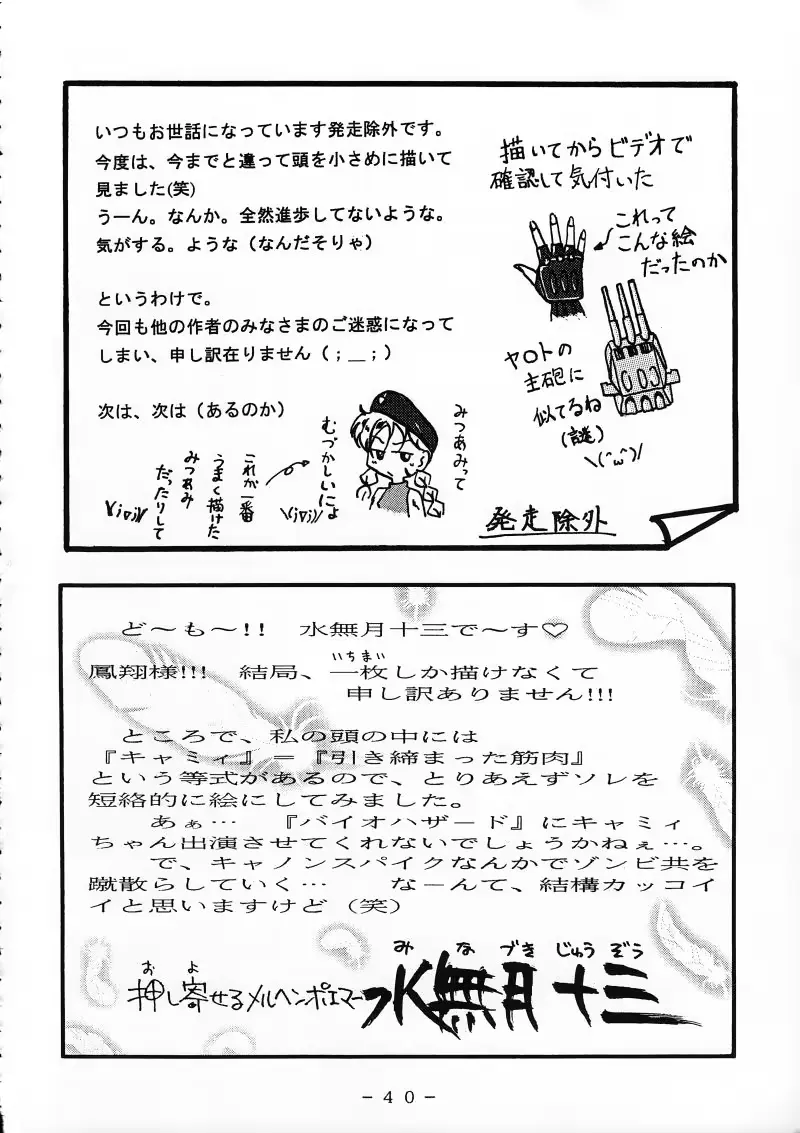 いつもお世話になっています発走除外です。
今度は、今までと違って頭を小さめに描いて
見ました(笑)
うーん。なんか。全然進歩してないような。
気がする。ような（なんだそりゃ）
というわけで。
今回も他の作者のみなさまのご迷惑になって
しまい、申し訳在りません（；＿；）
次は、次は（あるのか）
描いてからビデオで
確認して気付いた
これって
こんな絵
だったのか
ヤマトの
主砲に
似てるね
(謎)
＼(^ω^)/
みつあみって
むづかしいにょ
\(i▽i)/
これが一番
うまく描けた
みつあみ
だったりして
発走除外
ど〜も〜!!　水無月十三で〜す♡
鳳翔様!!!　結局、一枚しか描けなくて
いちまい
申し訳ありません!!!
ところで、私の頭の中には
『キャミィ』＝『引き締まった筋肉』
という等式があるので、とりあえずソレを
短絡的に絵にしてみました。
あぁ…　『バイオハザード』にキャミィ
ちゃん出演させてくれないでしょうかねぇ…。
で、キャノンスパイクなんかでゾンビ共を
蹴散らしていく…　なーんて、結構カッコイ
イと思いますけど（笑）
押し寄せるメルヘンポエマー
およ
水無月十三
みなづきじゅうぞう
-40-